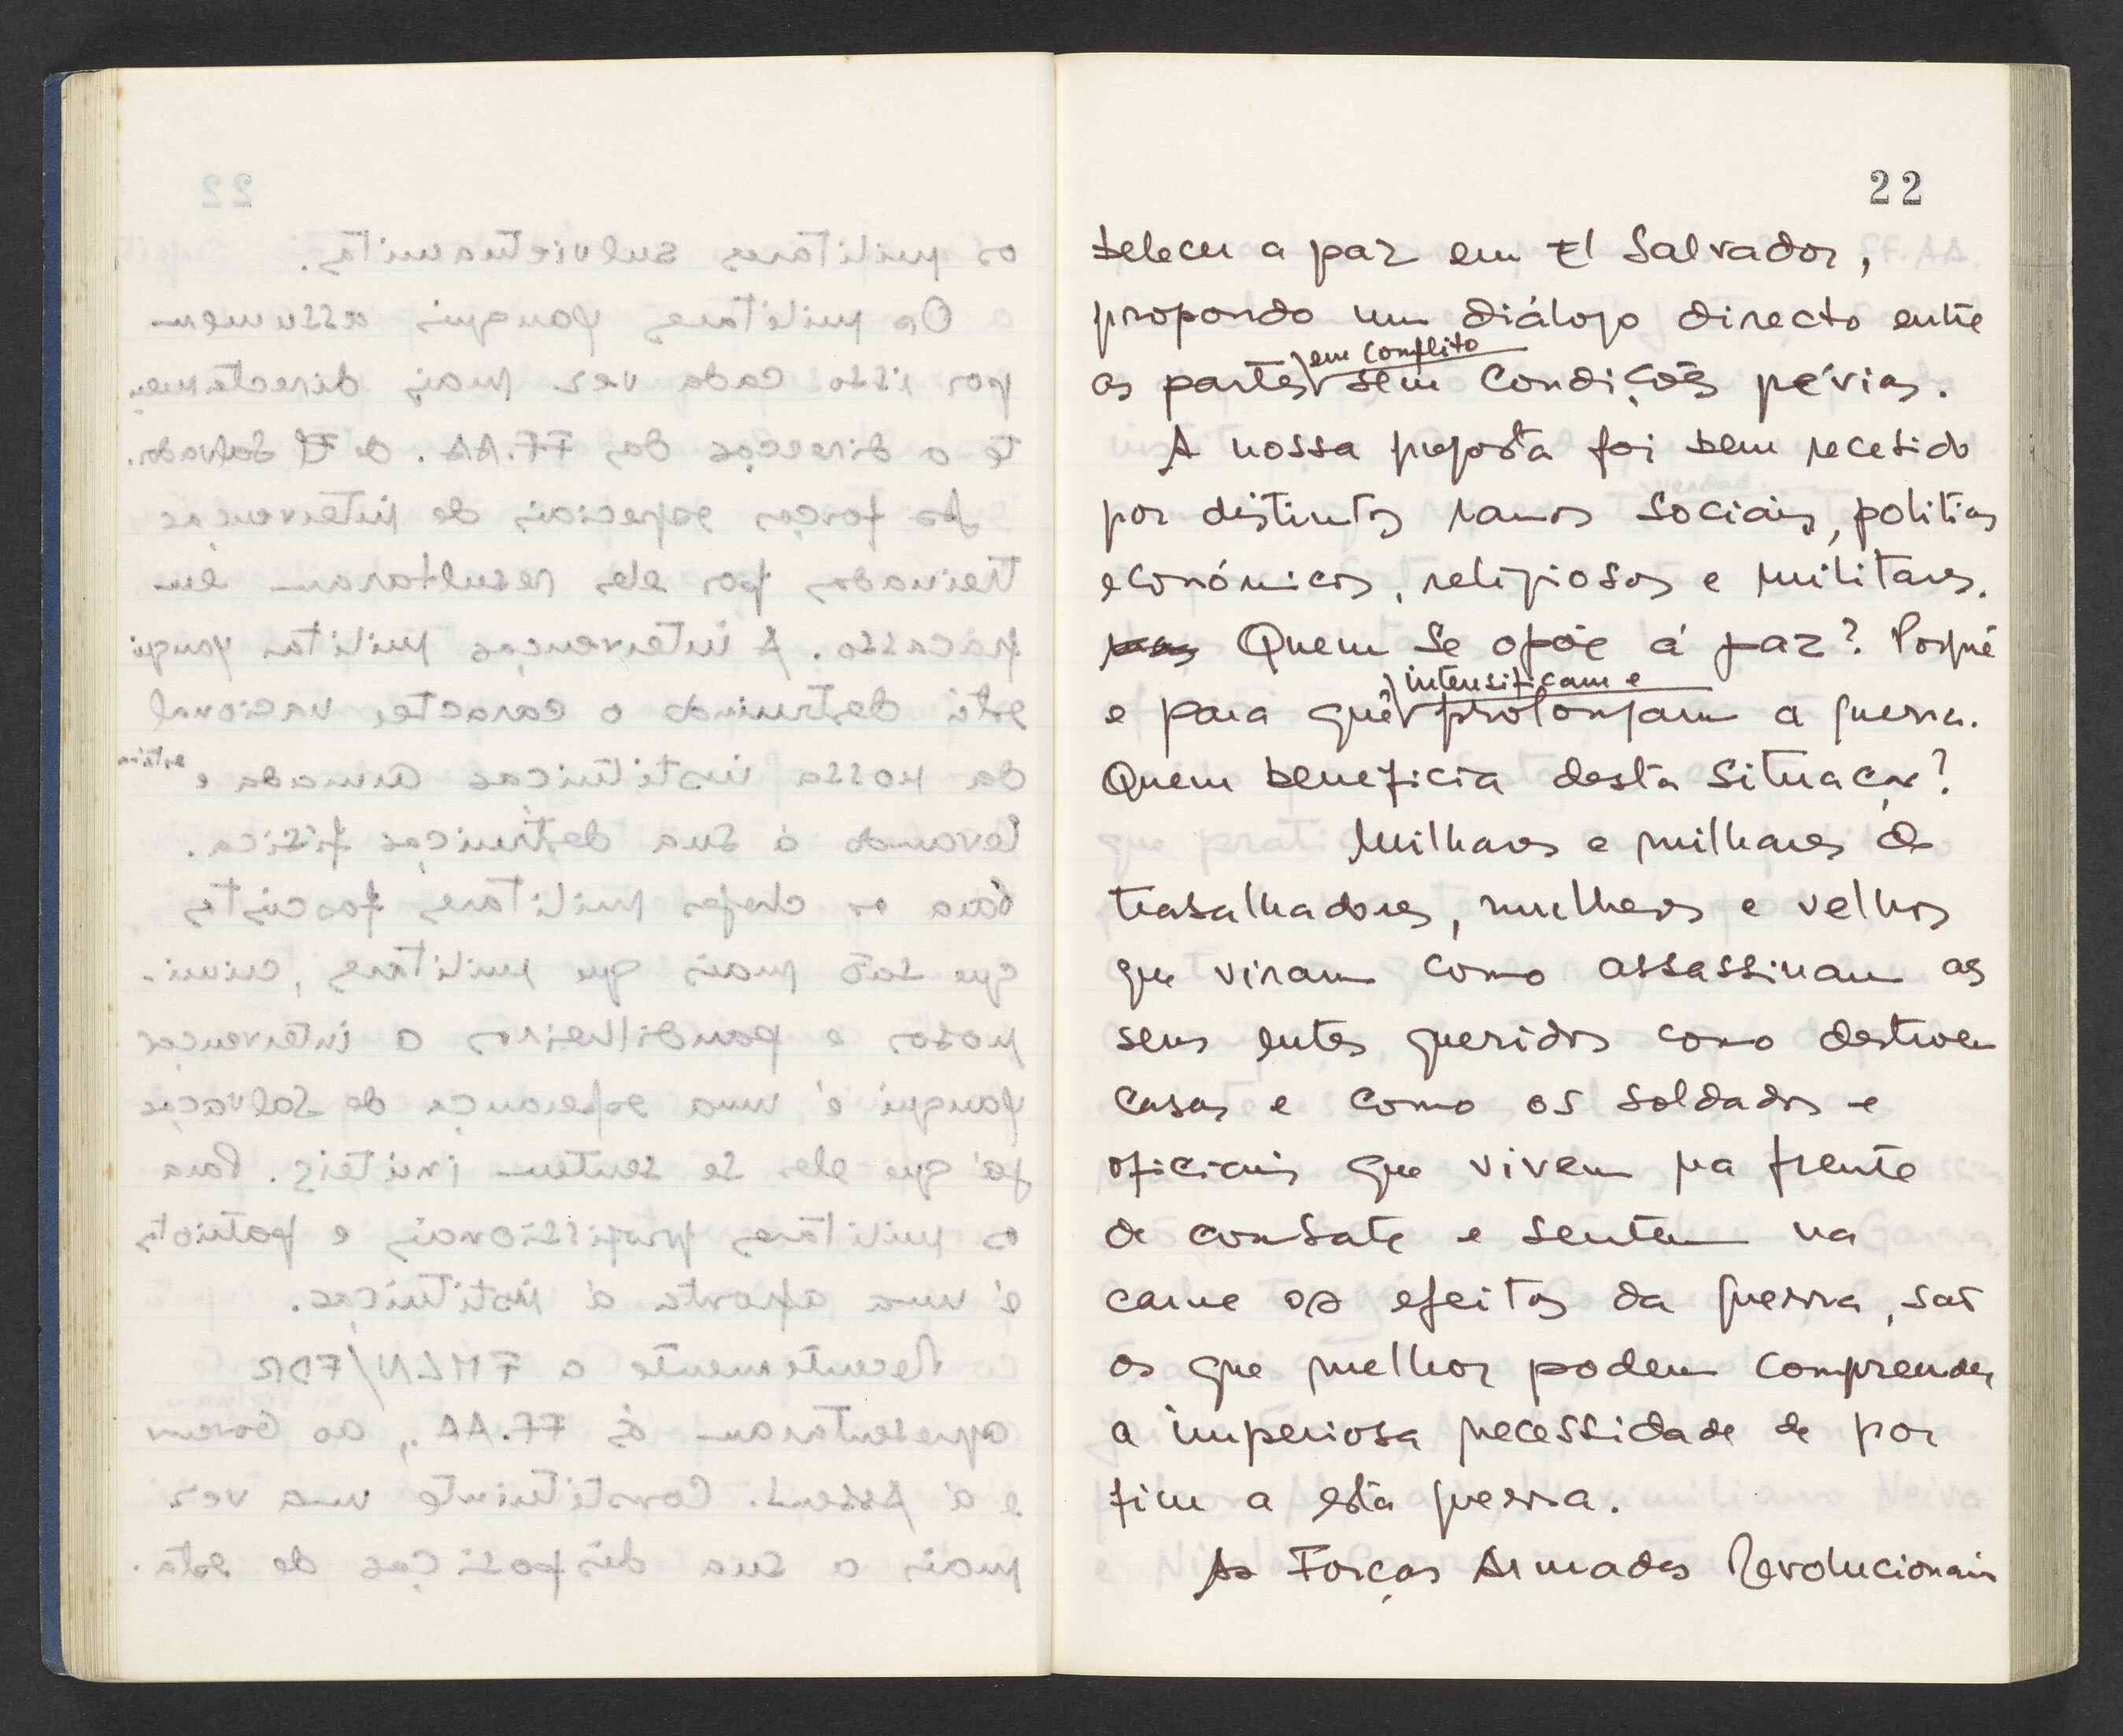 22
belecer a paz em El Salvador,
propondo um diálogo directo entre
em conflito
as partes sem condições prévias.
A nossa proposta foi bem recebido
por distintos ramos sociais, politicos
económicos, religiosos e militares.
Quem se opõe á paz? Porquê
intensificam e
e para quê prolongam a guerra.
Quem beneficia desta situação?
Milhares e milhares de
trabalhadores, mulheres e velhos
que viram como assassinam os
seus entes queridos como destroem
casas e como os soldados e
oficiais que vivem na frente
de combate e sentem na
carne os efeitos da guerra, são
os que melhor podem comprender
a imperiosa necessidade de por
fim a esta guerra.
As Forças Armadas Revolucionais